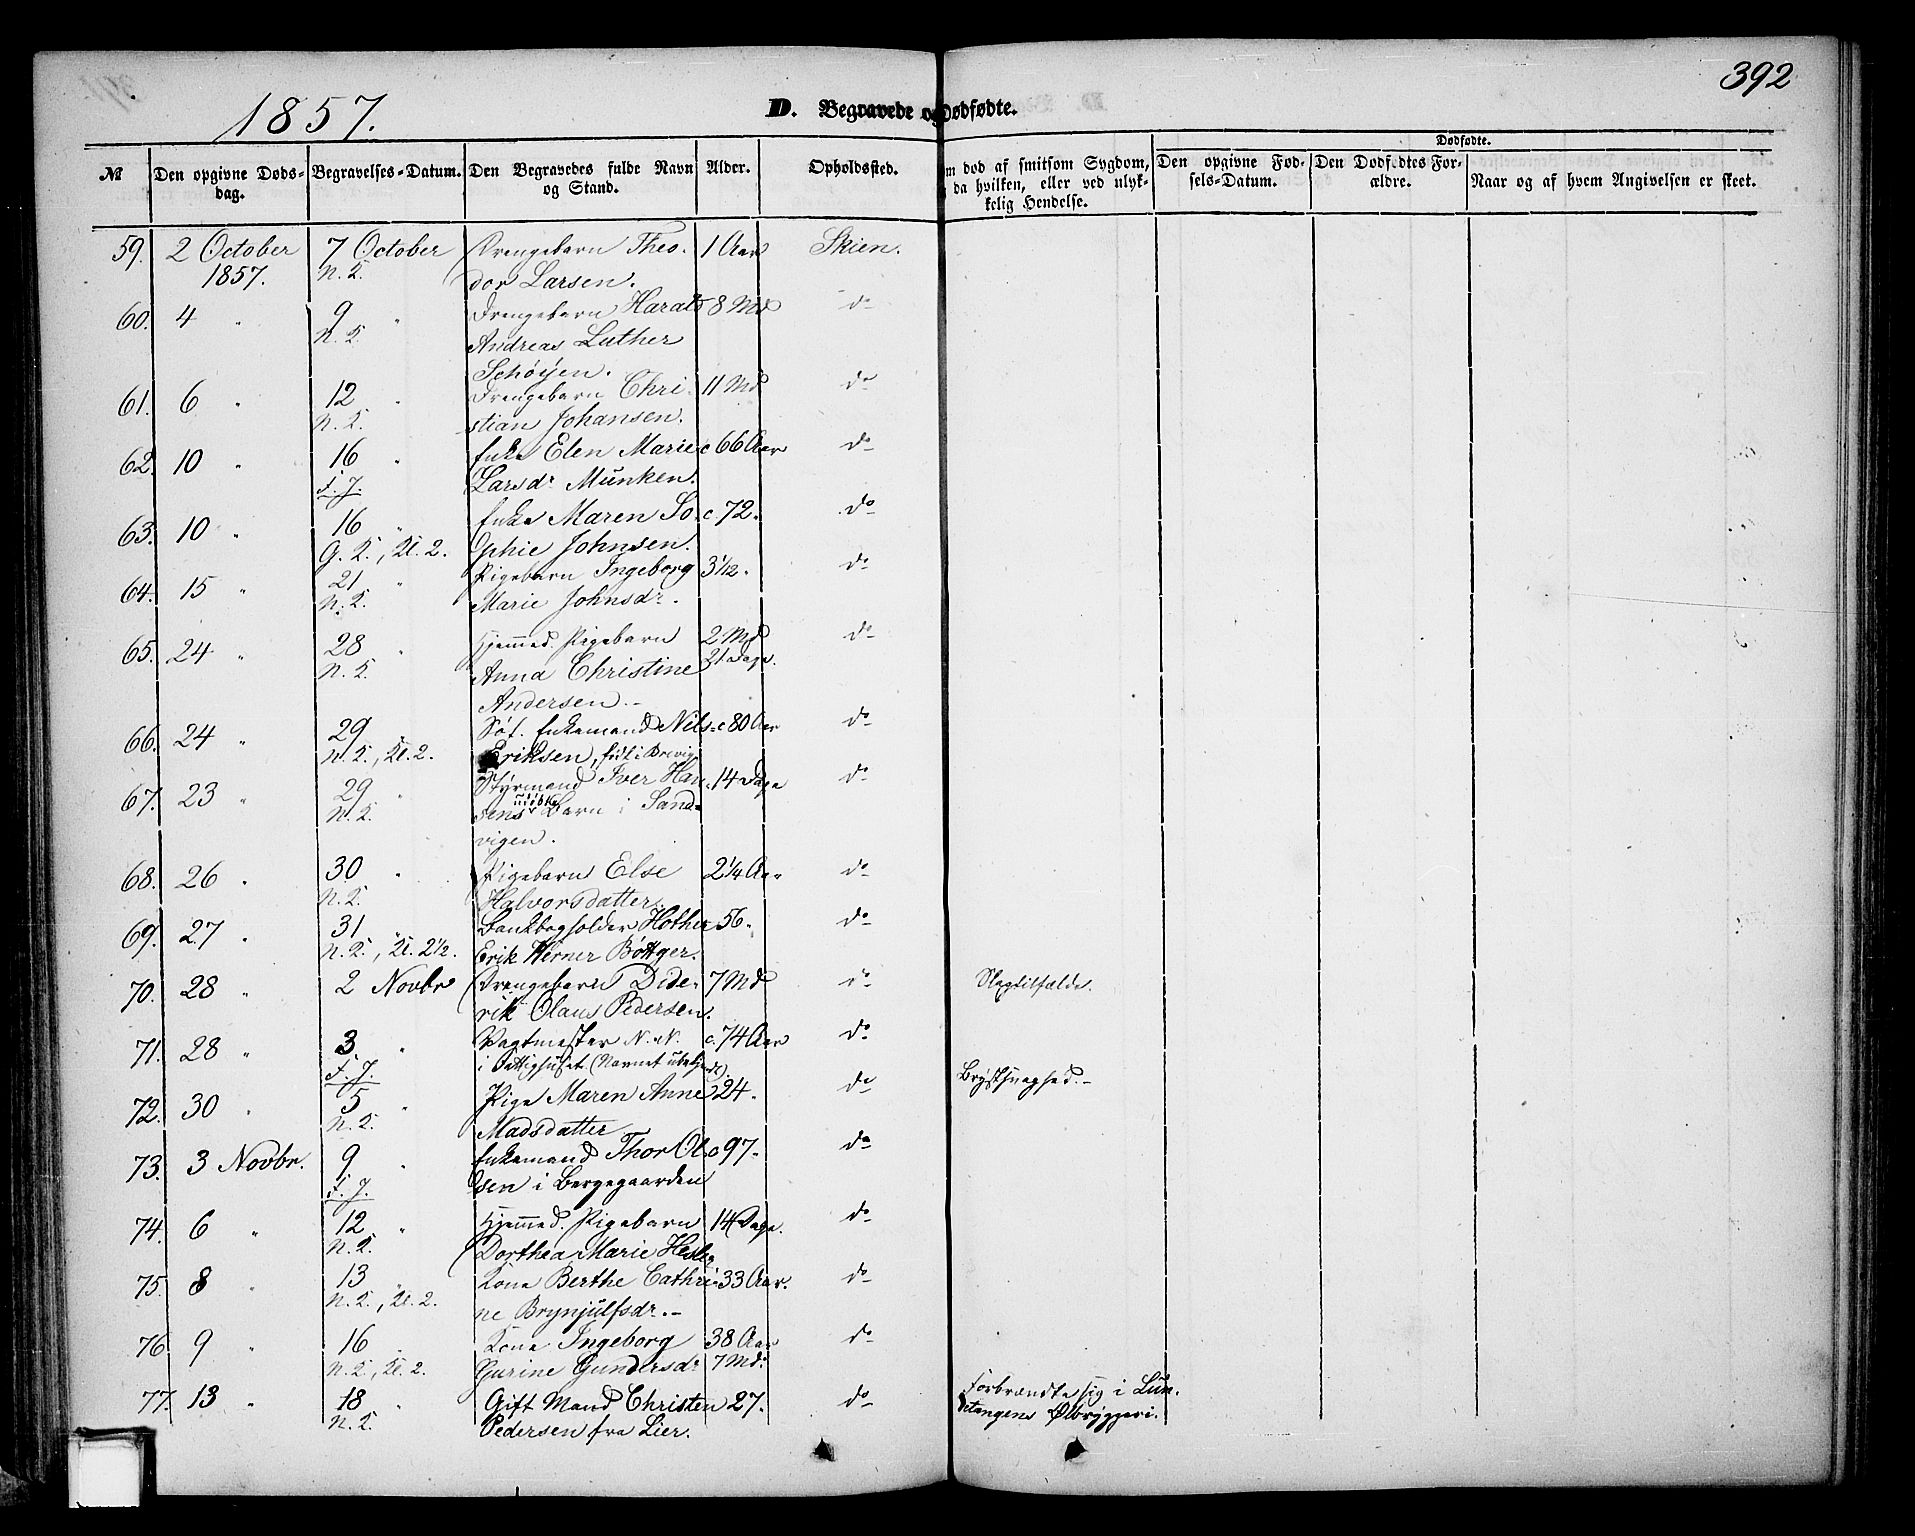 392
1857.
D. Begravede og Dødfødte.
Dødfødte.
№ Den opgivne Døds- Begravelses-Datum. Den Begravedes fulde Navn Alder. Opholdsted. Om død af smitsom Sygdom, Den opgivne Fød- Den Dødfødtes For- Naar og af hvem Angivelsen er skeet.
dag. og Stand. og da hvilken, eller ved ulyk- sels-Datum. ældre.
kelig Hendelse.
59. 2 October 7 October Drengebarn Theo- 1 Aar Skien.
1857. N. K. dor Larsen.
60. 4 " 9 " Drengebarn Harald 8 Md do
N. K. Andreas Luther
Schøyen.
61. 6 " 12 " Drengebarn Chri- 11 Md do
N. K. stian Johansen.
62. 10 " 16 " Enke Elen Marie c 66 Aar do
F. J. Larsdr Munken.
63. 10 " 16 " Enke Maren So- c. 72 " do
G. K., Kl. 2. phie Johnsen.
64. 15 " 21 " Pigebarn Ingeborg 3 1/12 " do
N. K. Marie Johnsdr.
65. 24 " 28 " Hjemmed. Pigebarn 2 Md do
N. K. Anna Christine 21 Dage.
Andersen.
66. 24 " 29 " Søf. Enkemand Nils c 80 Aar do
N. K., Kl. 2. Eriksen, født i Brevig
67. 23 " 29 " Styrmand Iver Han- 14 Dage do
N. K. sens udøbte Barn i Sand-
vigen.
68. 26 " 30 " Pigebarn Else 2 1/4 Aar do
N. K. Halvorsdatter.
69. 27 " 31 " Bankbogholder Hother 56 " do
N. K., Kl. 2 1/2. Erik Werner Bøttger.
70. 28 " 2 Novbr Drengebarn Dide- 7 Md do Slagtilfælde.
rik Olaus Pedersen.
71. 28 " 3 " Vagtmester N. N. c. 74 Aar do
F. J. i Fattighuset (Navnet ubekjendt).
72. 30 " 5 " Pige Maren Anne 24 " do Brystsvaghed.
N. K. Madsdatter
73. 3 Novbr. 9 " Enkemand Thor Ol- c 97 " do
F. J. sen i Bergegaarden
74. 6 " 12 " Hjemmed. Pigebarn 14 Dage. do
N. K. Dorthea Marie
75. 8 " 13 " Kone Berthe Cathri- 33 Aar. do
N. K., Kl. 2. ne Brynjulfsdr.
76 9 " 16 " Kone Ingeborg 38 Aar do
N. K., Kl. 2. Gurine Gundersdr 7 Md.
77. 13 " 18 " Gift Mand Christen 27 " do Forbrændte sig i Lun-
N. K. Pedersen fra Lier. detangens Ølbryggeri.